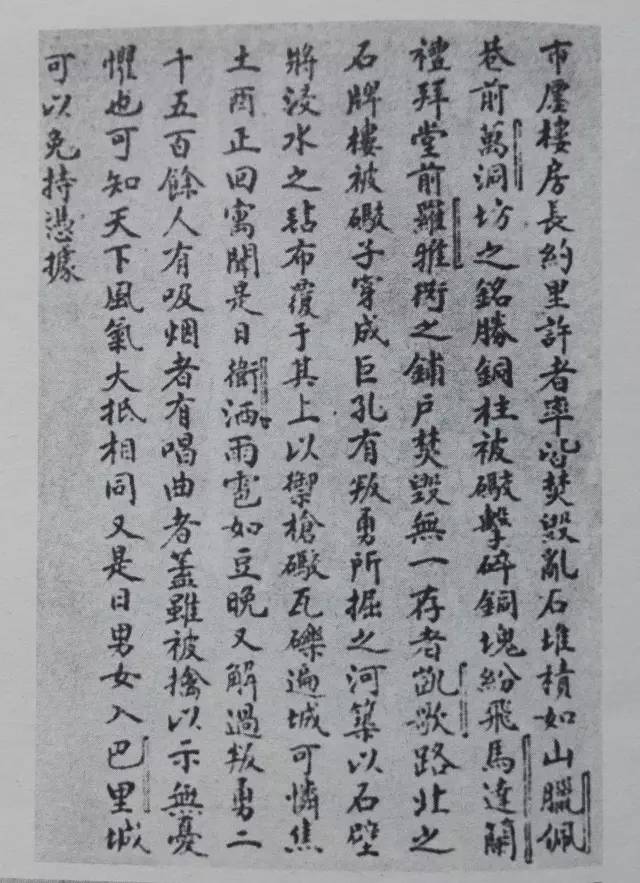 市廛樓房長約里許者率皆焚毀亂石堆積如山臘佩
巷前萬洞坊之銘勝銅柱被礮擊碎銅塊紛飛馬達蘭
禮拜堂前羅雅街之鋪戶焚毀無一存者凱歌路北之
石牌樓被礮子穿成巨孔有叛勇所掘之河築以石壁
將浸水之毡布覆于其上以禦槍礮瓦礫遍城可憐焦
土酉正回寓聞是日衛洒雨雹如豆晚又解過叛勇二
十五百餘人有吸烟者有唱曲者蓋雖被擒以示無憂
懼也可知天下風氣大抵相同又是日男女入巴里城
可以免持憑據